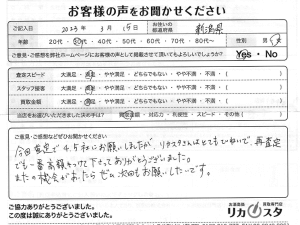 お客様の声をお聞かせください
ご記入日 2023年 3月 15日 お住いの都道府県 新潟県
年齢 20代・30代・40代・50代・60代・70代・80代〜 性別 男・女
ご意見・ご感想を弊社ホームページにお客様の声として掲載させて頂いてもよろしいでしょうか? Yes・No
査定スピード 大満足・満足・やや満足・どちらでもない・やや不満・不満 ( )
スタッフ接客 大満足・満足・やや満足・どちらでもない・やや不満・不満 ( )
買取金額 大満足・満足・やや満足・どちらでもない・やや不満・不満 ( )
当店をお選びいただいた決め手は? 買取金額・対応力・利便性・スピード・その他( )
ご意見・ご感想などぜひお聞かせください
今回査定で4.5社にお願いしましたが、リカスタさんはとてもていねいで、再査定
でも一番高値をつけて下さってありがとうございました。
またの機会があったらぜひ次回もお願いしたいです。
ご協力ありがとうございました。
この度は誠にありがとうございました。
お酒買取 買取専門店
リカスタ